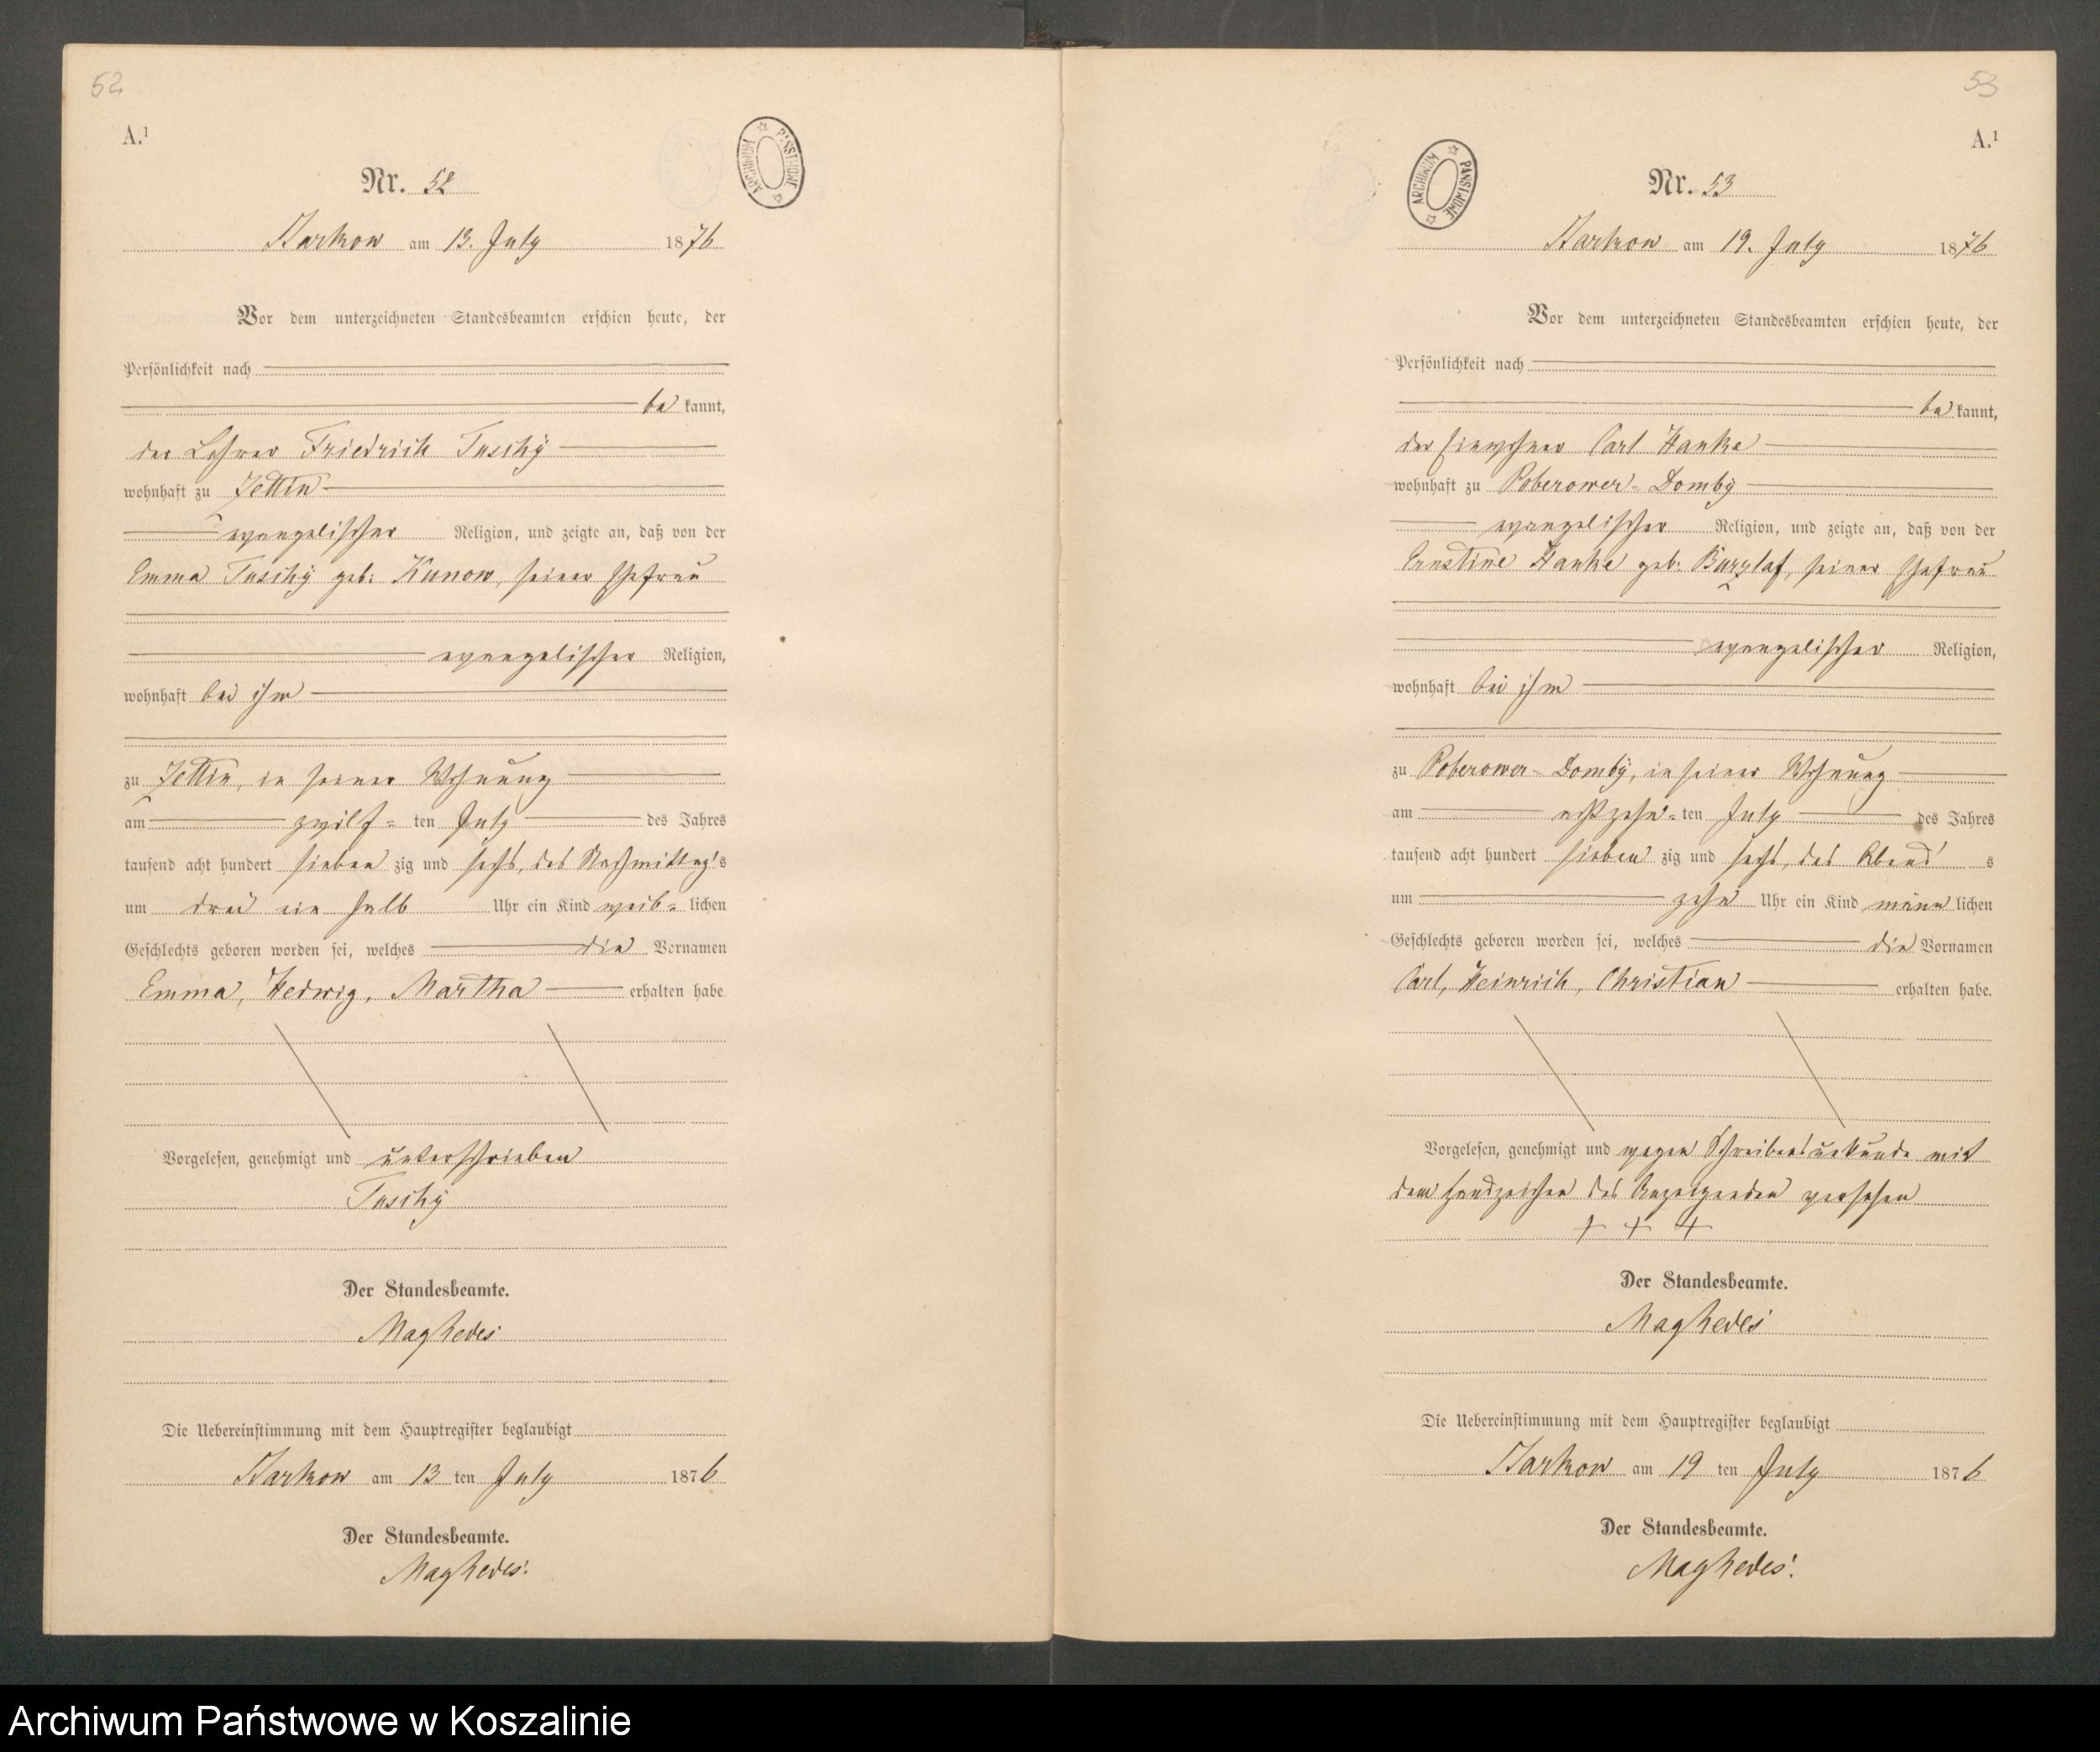 52
A.¹
ARCHIWUM PAŃSTWOWE
Nr. 52
Barkow am 13. July 1876
Vor dem unterzeichneten Standesbeamten erschien heute, der
Persönlichkeit nach
be kannt,
der Lehrer Friedrich Tuschÿ
wohnhaft zu Zettin
evangelischer Religion, und zeigte an, daß von der
Emma Tuschÿ geb: Kunow, seiner Ehefrau
evangelischer Religion,
wohnhaft bei ihm
zu Zettin, in seiner Wohnung
am zwölf-ten July des Jahres
tausend acht hundert sieben zig und sechs, des Nachmittag's
um drei ein halb Uhr ein Kind weib-lichen
Geschlechts geboren worden sei, welches die Vornamen
Emma, Hedwig, Martha erhalten habe
Vorgelesen, genehmigt und unterschrieben
Tuschÿ
Der Standesbeamte.
Die Uebereinstimmung mit dem Hauptregister beglaubigt
Barkow am 13 ten July 1876
Der Standesbeamte.
53
A.¹
ARCHIWUM PAŃSTWOWE
Nr. 53
Barkow am 19. July 1876
Vor dem unterzeichneten Standesbeamten erschien heute, der
Persönlichkeit nach
be kannt,
der Einwohner Carl Hanke
wohnhaft zu Poberower-Dombÿ
evangelischer Religion, und zeigte an, daß von der
Ernstine Hanke geb: Burzlaf, seiner Ehefrau
evangelischer Religion,
wohnhaft bei ihm
zu Poberower-Dombÿ, in seiner Wohnung
am achtzehn-ten July des Jahres
tausend acht hundert sieben zig und sechs, des Abend's
um zehn Uhr ein Kind männ lichen
Geschlechts geboren worden sei, welches die Vornamen
Carl, Heinrich, Christian erhalten habe.
Vorgelesen, genehmigt und wegen Schreibensunkunde mit
dem Handzeichen des Anzeigenden versehen
+ + +
Der Standesbeamte.
Die Uebereinstimmung mit dem Hauptregister beglaubigt
Barkow am 19 ten July 1876
Der Standesbeamte.
Archiwum Państwowe w Koszalinie